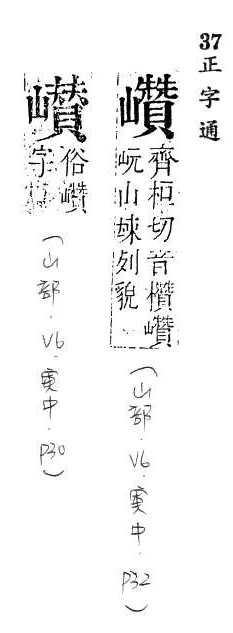 37正字通
巑
齊和切音欑巑
岏山竦列貌
（山部．V6．寅中．P32）
㠝
俗巑
字
（山部．V6．寅中．P30）